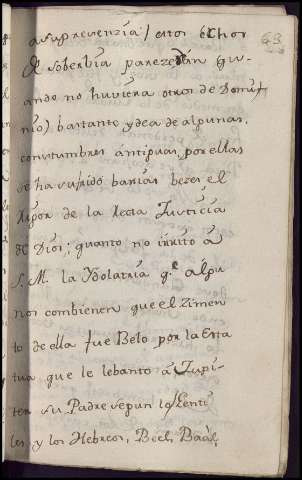 63
a su prevenzia / estos échos
de soberbia parezerán qu-
ando no huviera otros de Domi-
nio) bastante ydea de algunas,
constumbres antiguas, por ellas
se ha sufrido barias bezes el
rigor de la recta Justicia
de Dios; quanto no irritó á
S. M. la Ydolatria q.e algu
nos combienen que el Zimen
to de ella fue Belo por la esta
tua que le lebanto á Jupi-
ter su Padre segun los Genti
les, y los Hebreos, Beel, Baàl,